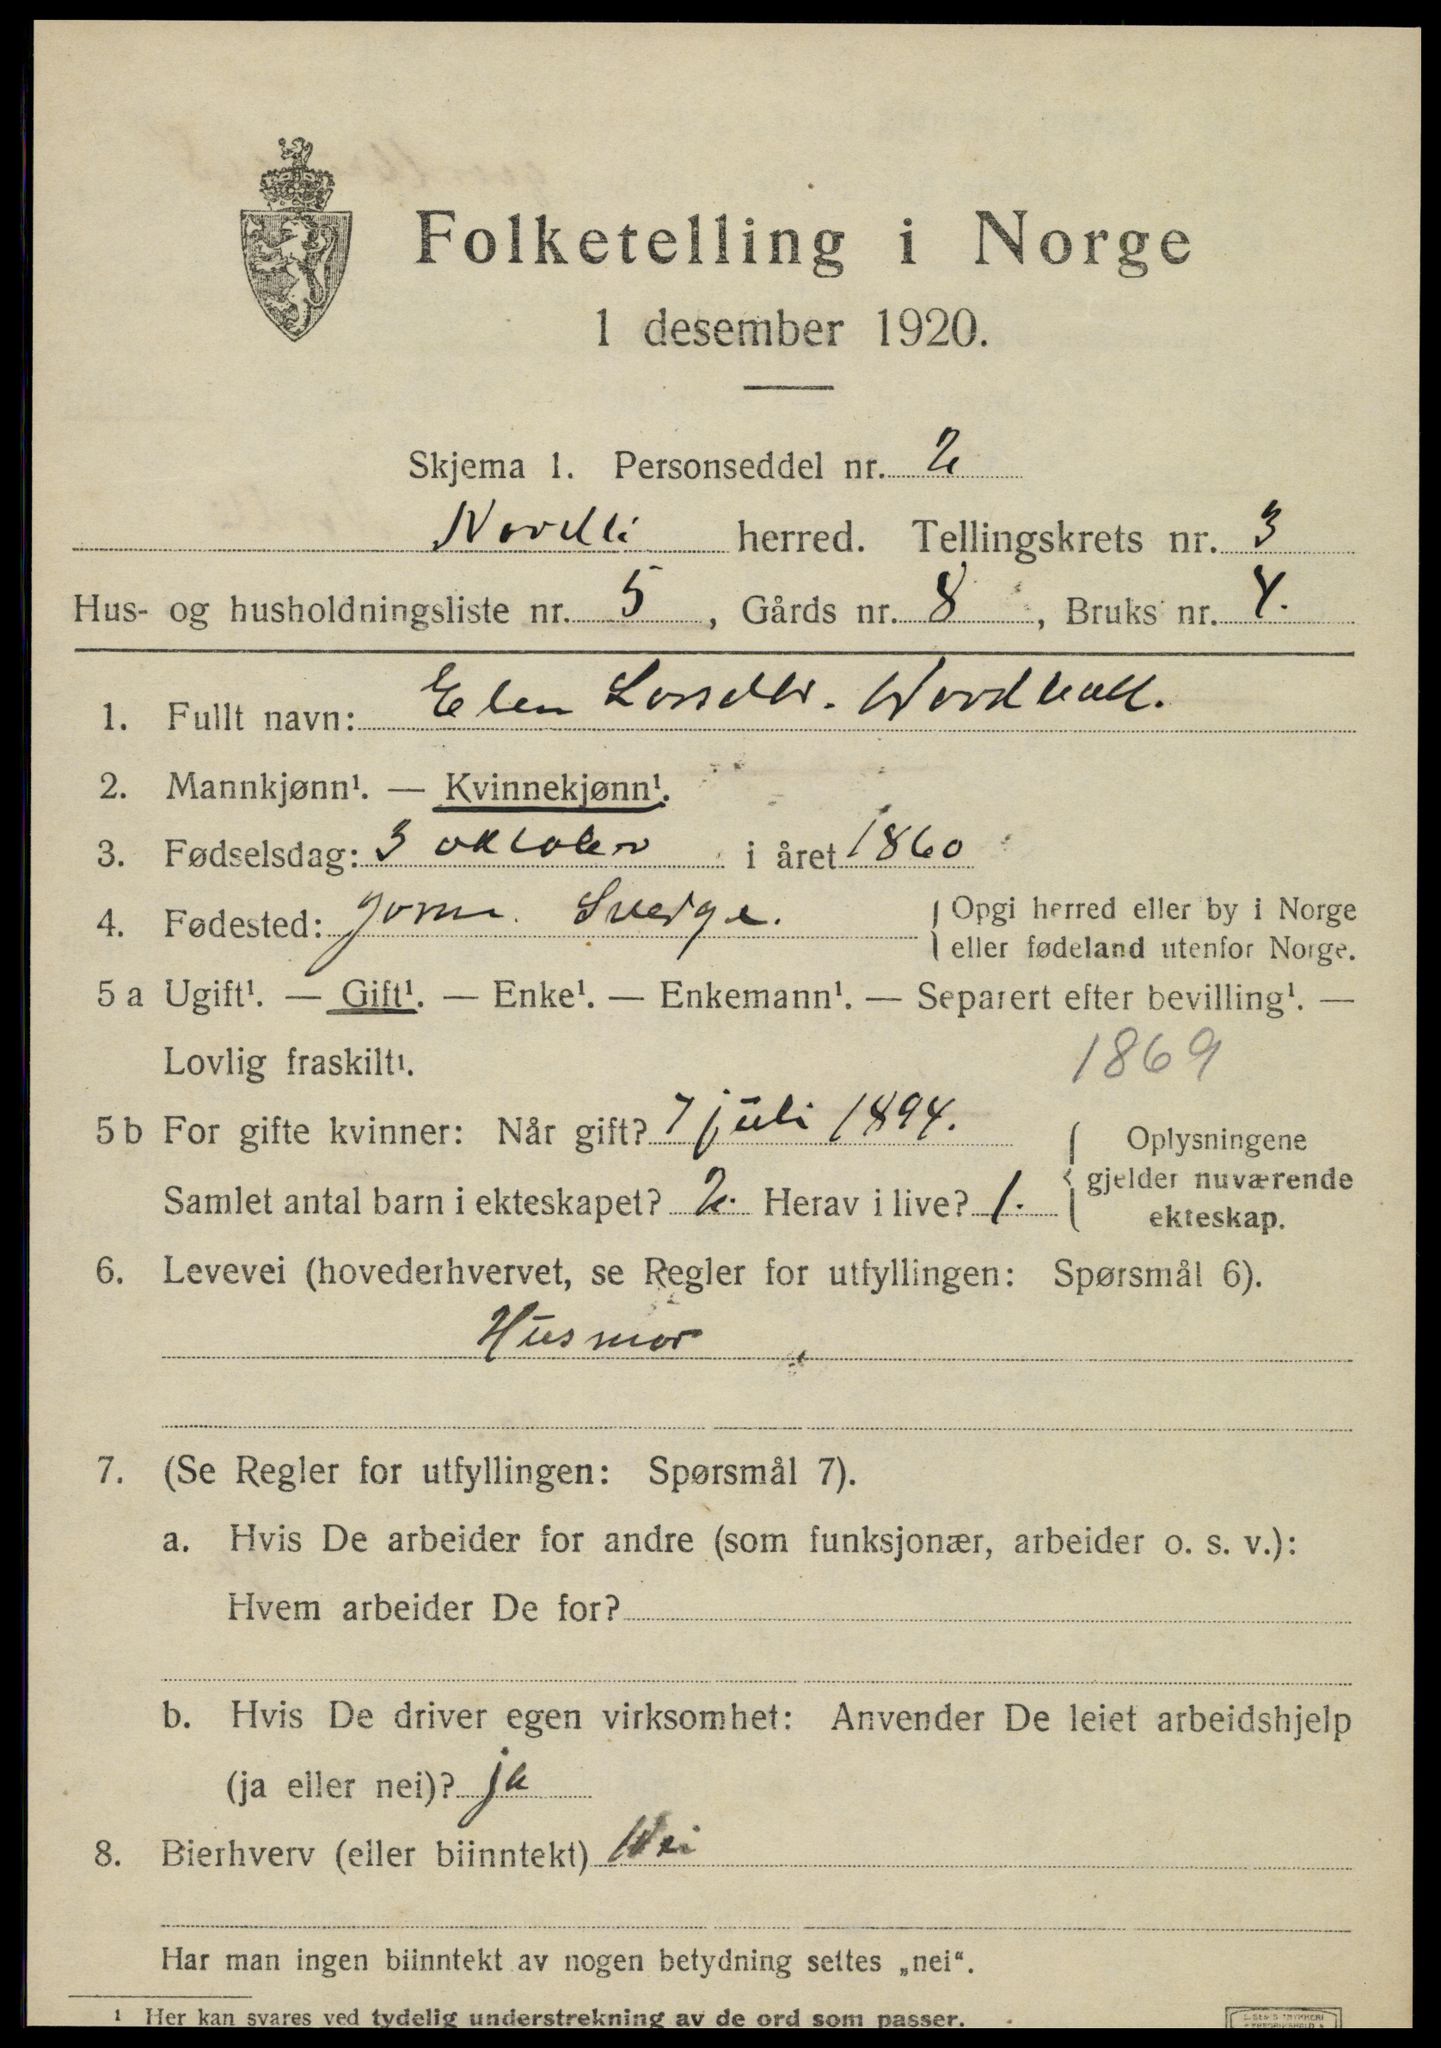 Folketelling i Norge
1 desember 1920.
Skjema 1. Personseddel nr. 2
Nordli herred. Tellingskrets nr. 3
Hus- og husholdningsliste nr. 5, Gårds nr. 8, Bruks nr. 4.
1. Fullt navn: Elen Nordli.
2. Mannkjønn¹. — Kvinnekjønn¹.
3. Fødselsdag: 3 oktober i året 1860
4. Fødested: Sverge. Opgi herred eller by i Norge
eller fødeland utenfor Norge.
5 a Ugift¹. — Gift¹. — Enke¹. — Enkemann¹. — Separert efter bevilling¹. —
Lovlig fraskilt¹.
1869
5 b For gifte kvinner: Når gift? 7 juli 1894. Oplysningene
gjelder nuværende
Samlet antal barn i ekteskapet? 2. Herav i live? 1. ekteskap.
6. Levevei (hovederhvervet, se Regler for utfyllingen: Spørsmål 6).
Husmor
7. (Se Regler for utfyllingen: Spørsmål 7).
a. Hvis De arbeider for andre (som funksjonær, arbeider o. s. v.):
Hvem arbeider De for?
b. Hvis De driver egen virksomhet: Anvender De leiet arbeidshjelp
(ja eller nei)? ja
8. Bierhverv (eller biinntekt) Nei
Har man ingen biinntekt av nogen betydning settes „nei“.
¹ Her kan svares ved tydelig understrekning av de ord som passer.